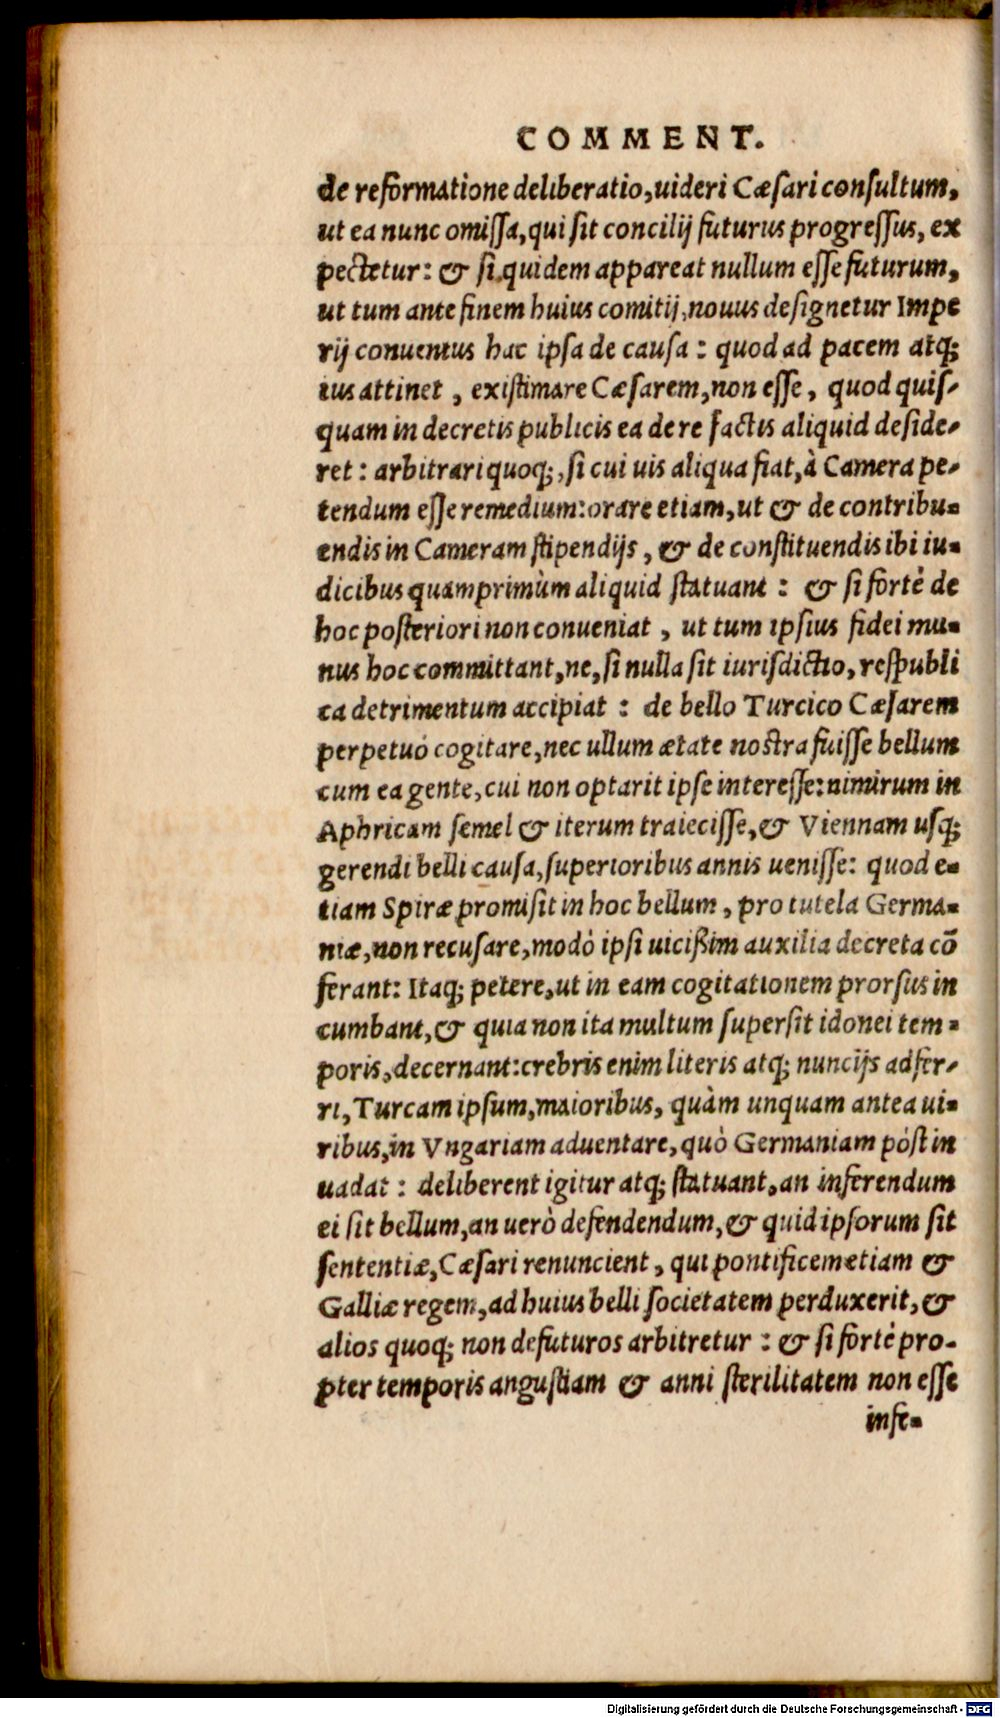 COMMENT.
de reformatione deliberatio, uideri Cæsari consultum,
ut ea nunc omissa, qui sit concilij futurus progressus, ex
pectetur: & si quidem appareat nullum esse futurum,
ut tum ante finem huius comitij, nouus designetur Impe
rij conuentus hac ipsa de causa : quod ad pacem atq;
ius attinet , existimare Cæsarem, non esse , quod quis-
quam in decretis publicis ea de re factis aliquid deside-
ret : arbitrari quoq;, si cui uis aliqua fiat, à Camera pe-
tendum esse remedium: orare etiam, ut & de contribu-
endis in Cameram stipendijs , & de constituendis ibi iu-
dicibus quamprimùm aliquid statuant : & si fortè de
hoc posteriori non conueniat , ut tum ipsius fidei mu-
nus hoc committant, ne, si nulla sit iurisdictio, respubli
ca detrimentum accipiat : de bello Turcico Cæsarem
perpetuò cogitare, nec ullum ætate nostra fuisse bellum
cum ea gente, cui non optarit ipse interesse: nimirum in
Aphricam semel & iterum traiecisse, & Viennam usq;
gerendi belli causa, superioribus annis uenisse: quod e-
tiam Spiræ promisit in hoc bellum , pro tutela Germa-
niæ, non recusare, modò ipsi uicißim auxilia decreta cō
ferant: Itaq; petere, ut in eam cogitationem prorsus in
cumbant, & quia non ita multum supersit idonei tem-
poris, decernant: crebris enim literis atq; nuncijs adfer-
ri, Turcam ipsum, maioribus, quàm unquam antea ui-
ribus, in Vngariam aduentare, quò Germaniam pòst in
uadat : deliberent igitur atq; statuant, an inferendum
ei sit bellum, an uerò defendendum, & quid ipsorum sit
sententiæ, Cæsari renuncient , qui pontificem etiam &
Galliæ regem, ad huius belli societatem perduxerit, &
alios quoq; non defuturos arbitretur : & si fortè pro-
pter temporis angustiam & anni sterilitatem non esse
infe-
Digitalisierung gefördert durch die Deutsche Forschungsgemeinschaft - DFG